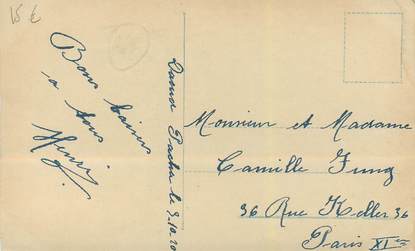 15 €
Bons baisers
a tous
Henry
Daoud Pacha le 9.10.20
Monsieur et Madame
Camille Jung
36 Rue Keller 36
Paris XI